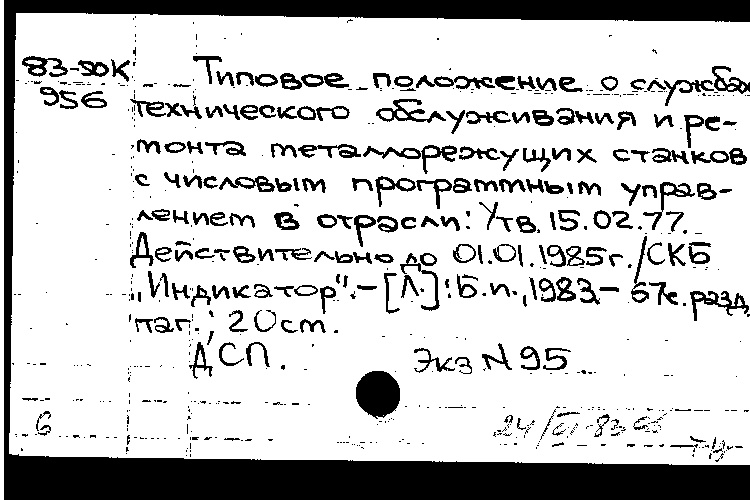 83-50К
956
Типовое положение о службах
технического обслуживания и ре-
монта металлорежущих станков
с числовым программным управ-
лением в отрасли: Утв. 15.02.77.
Действительно до 01.01.1985г./СКБ
„Индикатор".-[Л.]: Б.п., 1983.- 67с. разд.
паг.; 20см.
ДСП. Экз N 95.
6
24/